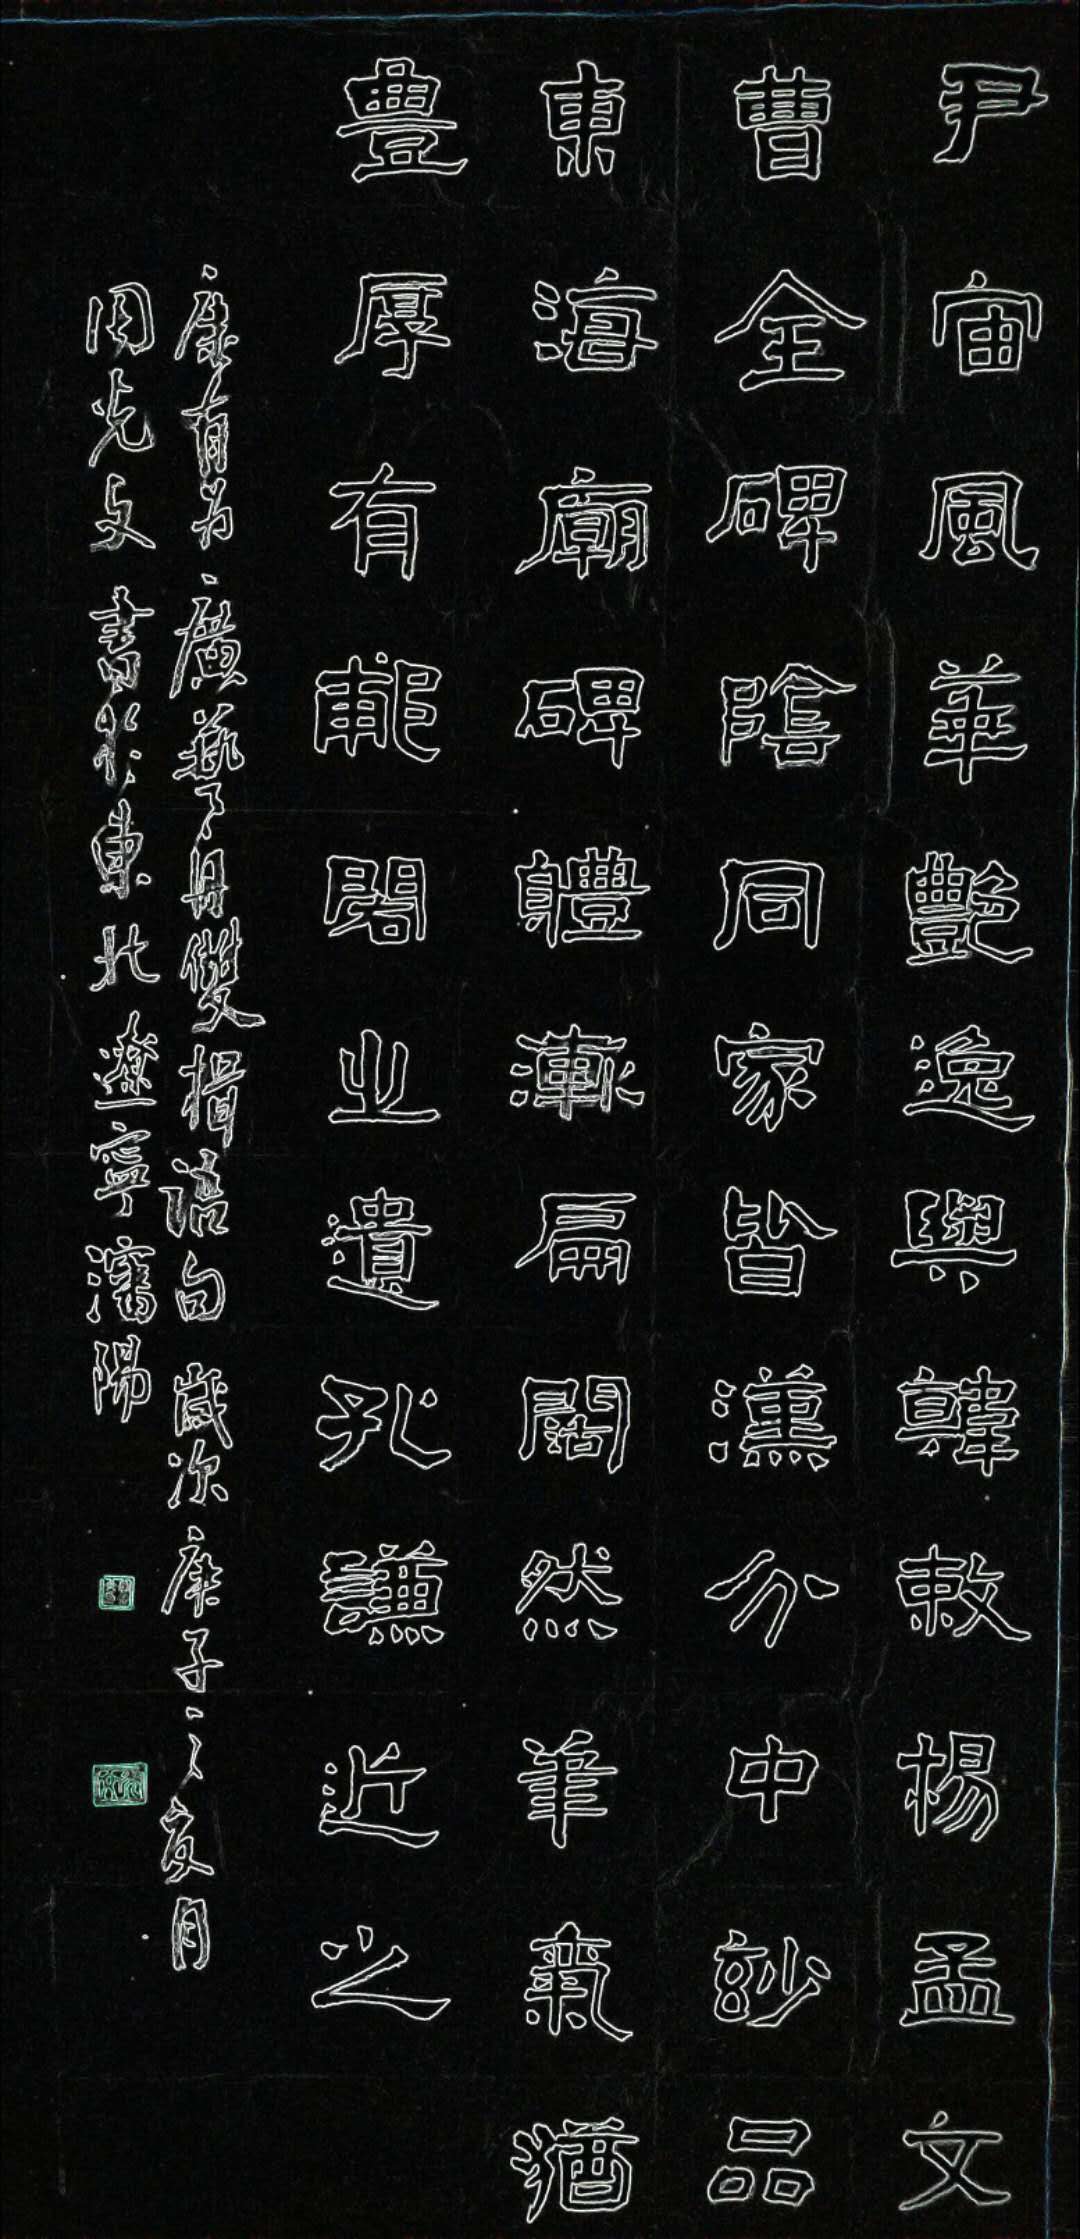 尹宙風華艷逸與韓敕楊孟文
曹全碑陰同家皆漢分中玅品
東海廟碑軆漸扁闊然筆氣猶
豊厚有郙閣之遺孔謙近之
康有为廣藝舟雙楫語句歲次庚子之夏月
書於東北遼寧瀋陽